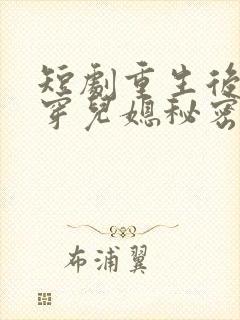 短劇重生後
穿兒媳秘密
布浦翼